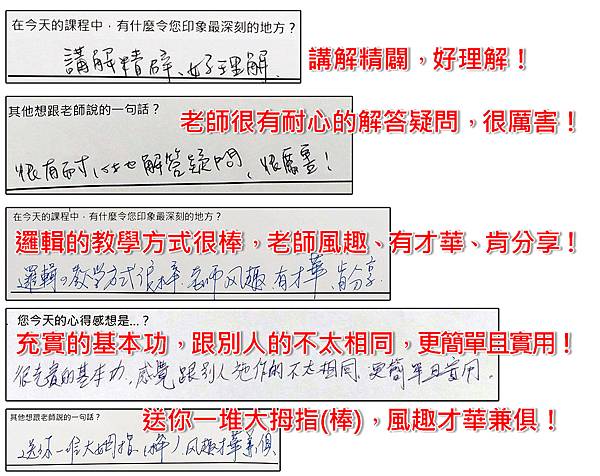 在今天的課程中，有什麼令您印象最深刻的地方？
講解精辟、好理解.
講解精闢，好理解！
其他想跟老師說的一句話？
老師很有耐心的解答疑問，很厲害！
很有耐心地解答疑問、很厲害！
在今天的課程中，有什麼令您印象最深刻的地方？
邏輯的教學方式很棒，老師風趣、有才華、肯分享！
邏輯の教学方式很棒.老師风趣 有才華、肯分享.
您今天的心得感想是...？
充實的基本功，跟別人的不太相同，更簡單且實用！
很充實的基本功、感覺跟別人他作的不太相同.更簡單且實用.
送你一堆大拇指(棒)，風趣才華兼俱！
其他想跟老師說的一句話？
送你一堆大姆指(棒)风趣才華兼俱